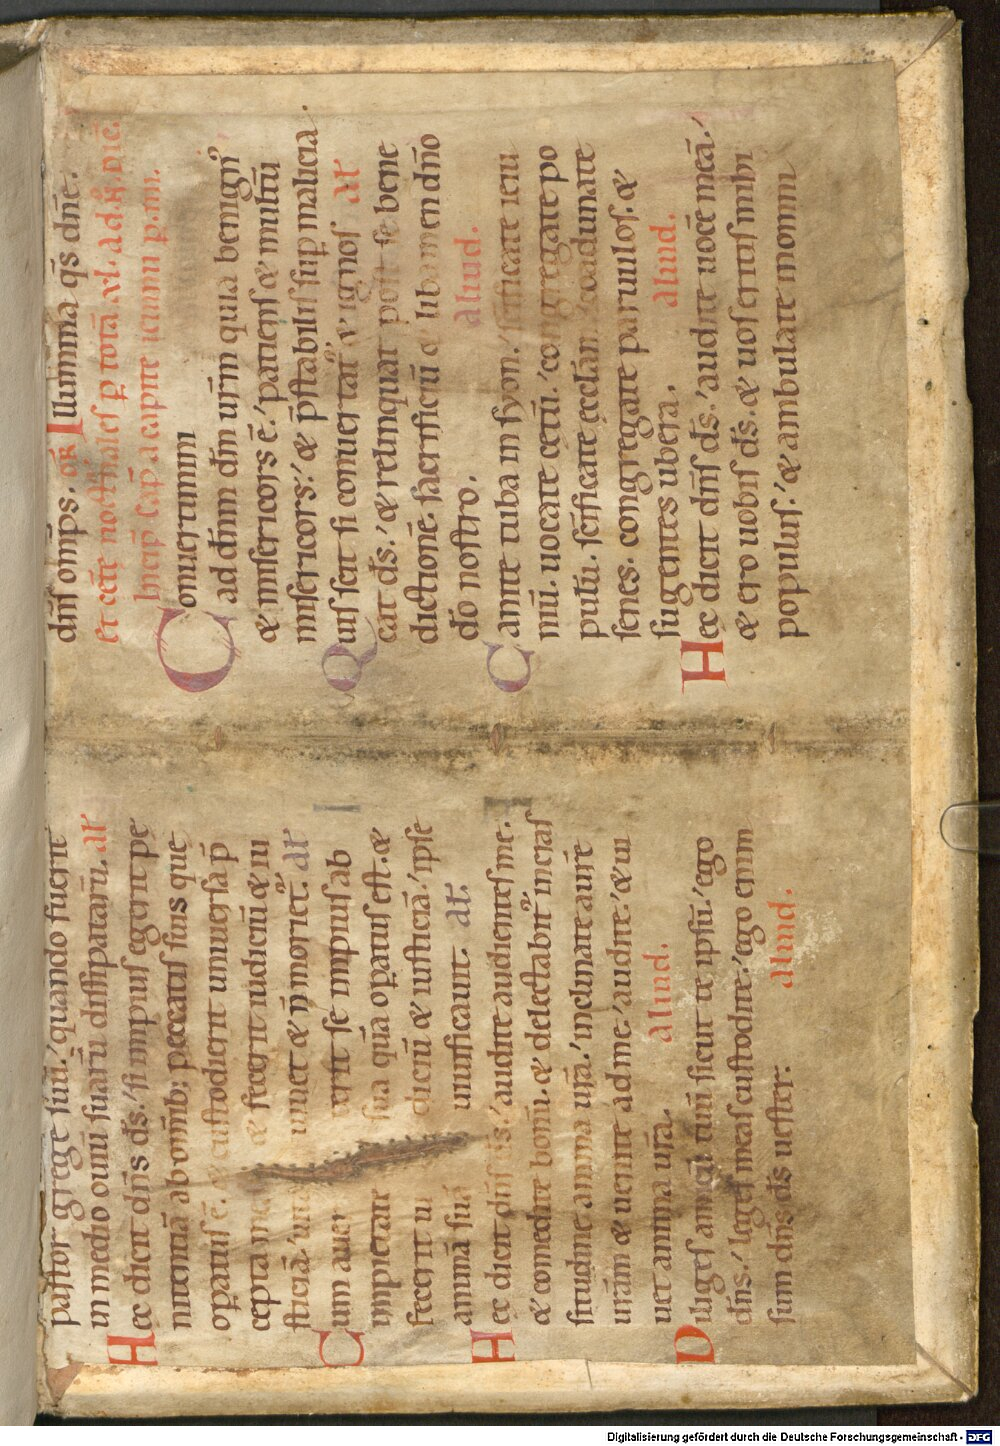 pastor grege suū.' quando fuerit
in medio ouiū suarū dissipatarū. Al'
Hec dicit dn̄s ds̄.' si impius egerit pe
nitentiā ab om̄ib; peccatis suis que
opatus ē. & custodierit uniuersa p̄
cepta mea & fecerit iudiciū & iu
sticiā.' uita uiuet & n̄ moriet᷑. al'
Cum auer erit se impius ab
impietate sua quā opatus est. &
fecerit iu diciū & iusticiā.' ipse
animā suā uiuificauit. al'.
Hec dicit dn̄s ds̄.' audite audientes me.
& comedite bonū. & delectabit᷑ in cras
situdine anima ur̄a.' inclinate aurē
ur̄am & uenite ad me.' audite.' & ui
uet anima ur̄a. aliud.
Diliges amicū tuū sicut te ipsū.' ego
dn̄s.' leges meas custodite.' ego enim
sum dn̄s ds̄ uester: aliud.
dn̄s omp̄s. or̄ Illumina qs̄ dn̄e.
Incip̄ cap̄ a capite ieiunii p. m.
Conuertimini
ad dn̄m dm̄ ur̄m quia benign᷒
& misericors ē.' patiens & multū
misericors.' & p̄stabilis sup malicia.
Quis scit si conuertat᷑ & ignos al'
cat ds̄.' & relinquat post se bene
dictionē. sacrificiū & libamen dn̄o
dō nostro. aliud.
Canite tuba in syon.' sc̄ificate ieiu
niū. uocate cetū.' congregate po
pulū. sc̄ificate eccl̄am.' coadunate
senes. congregate paruulos. &
sugentes ubera. aliud.
Hec dicit dn̄s ds̄.' audite uocē meā.'
& ero uobis ds̄. & uos eritis mihi
populus.' & ambulate in omni
Digitalisierung gefördert durch die Deutsche Forschungsgemeinschaft - DFG